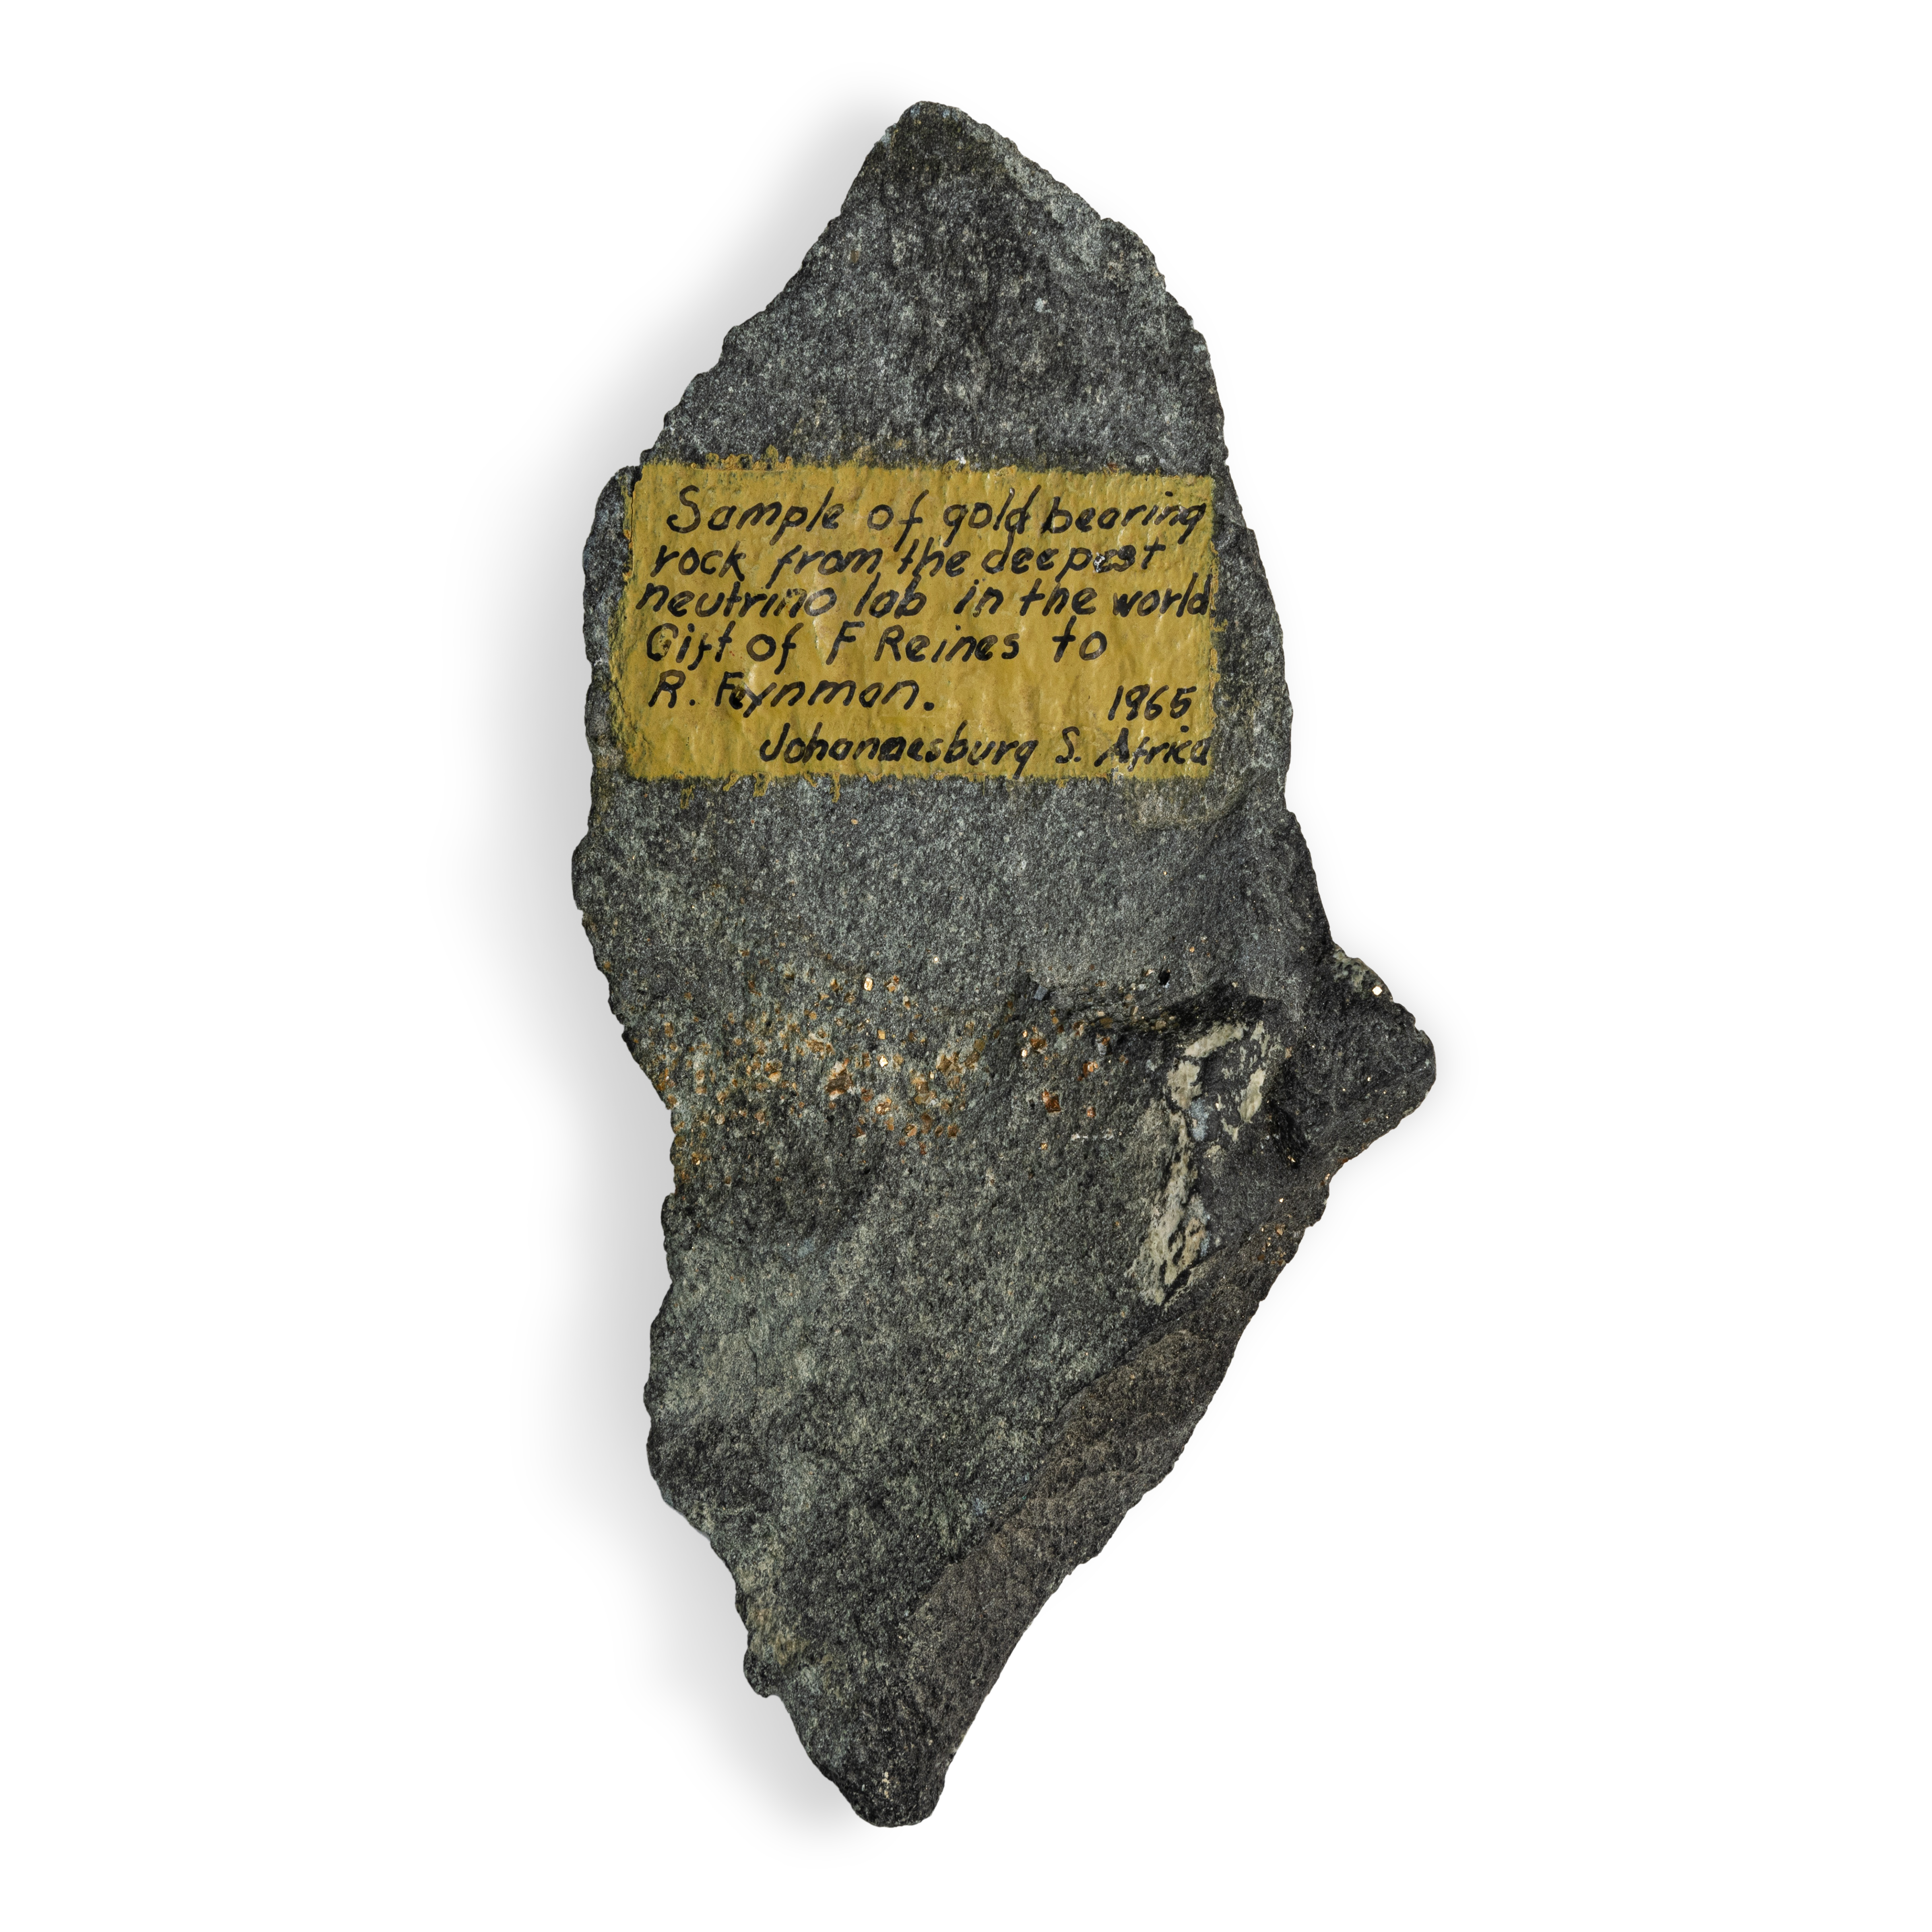 Sample of gold bearing
rock from the deepest
neutrino lab in the world
Gift of F Reines to
R. Feynman. 1965
Johannesburg S. Africa